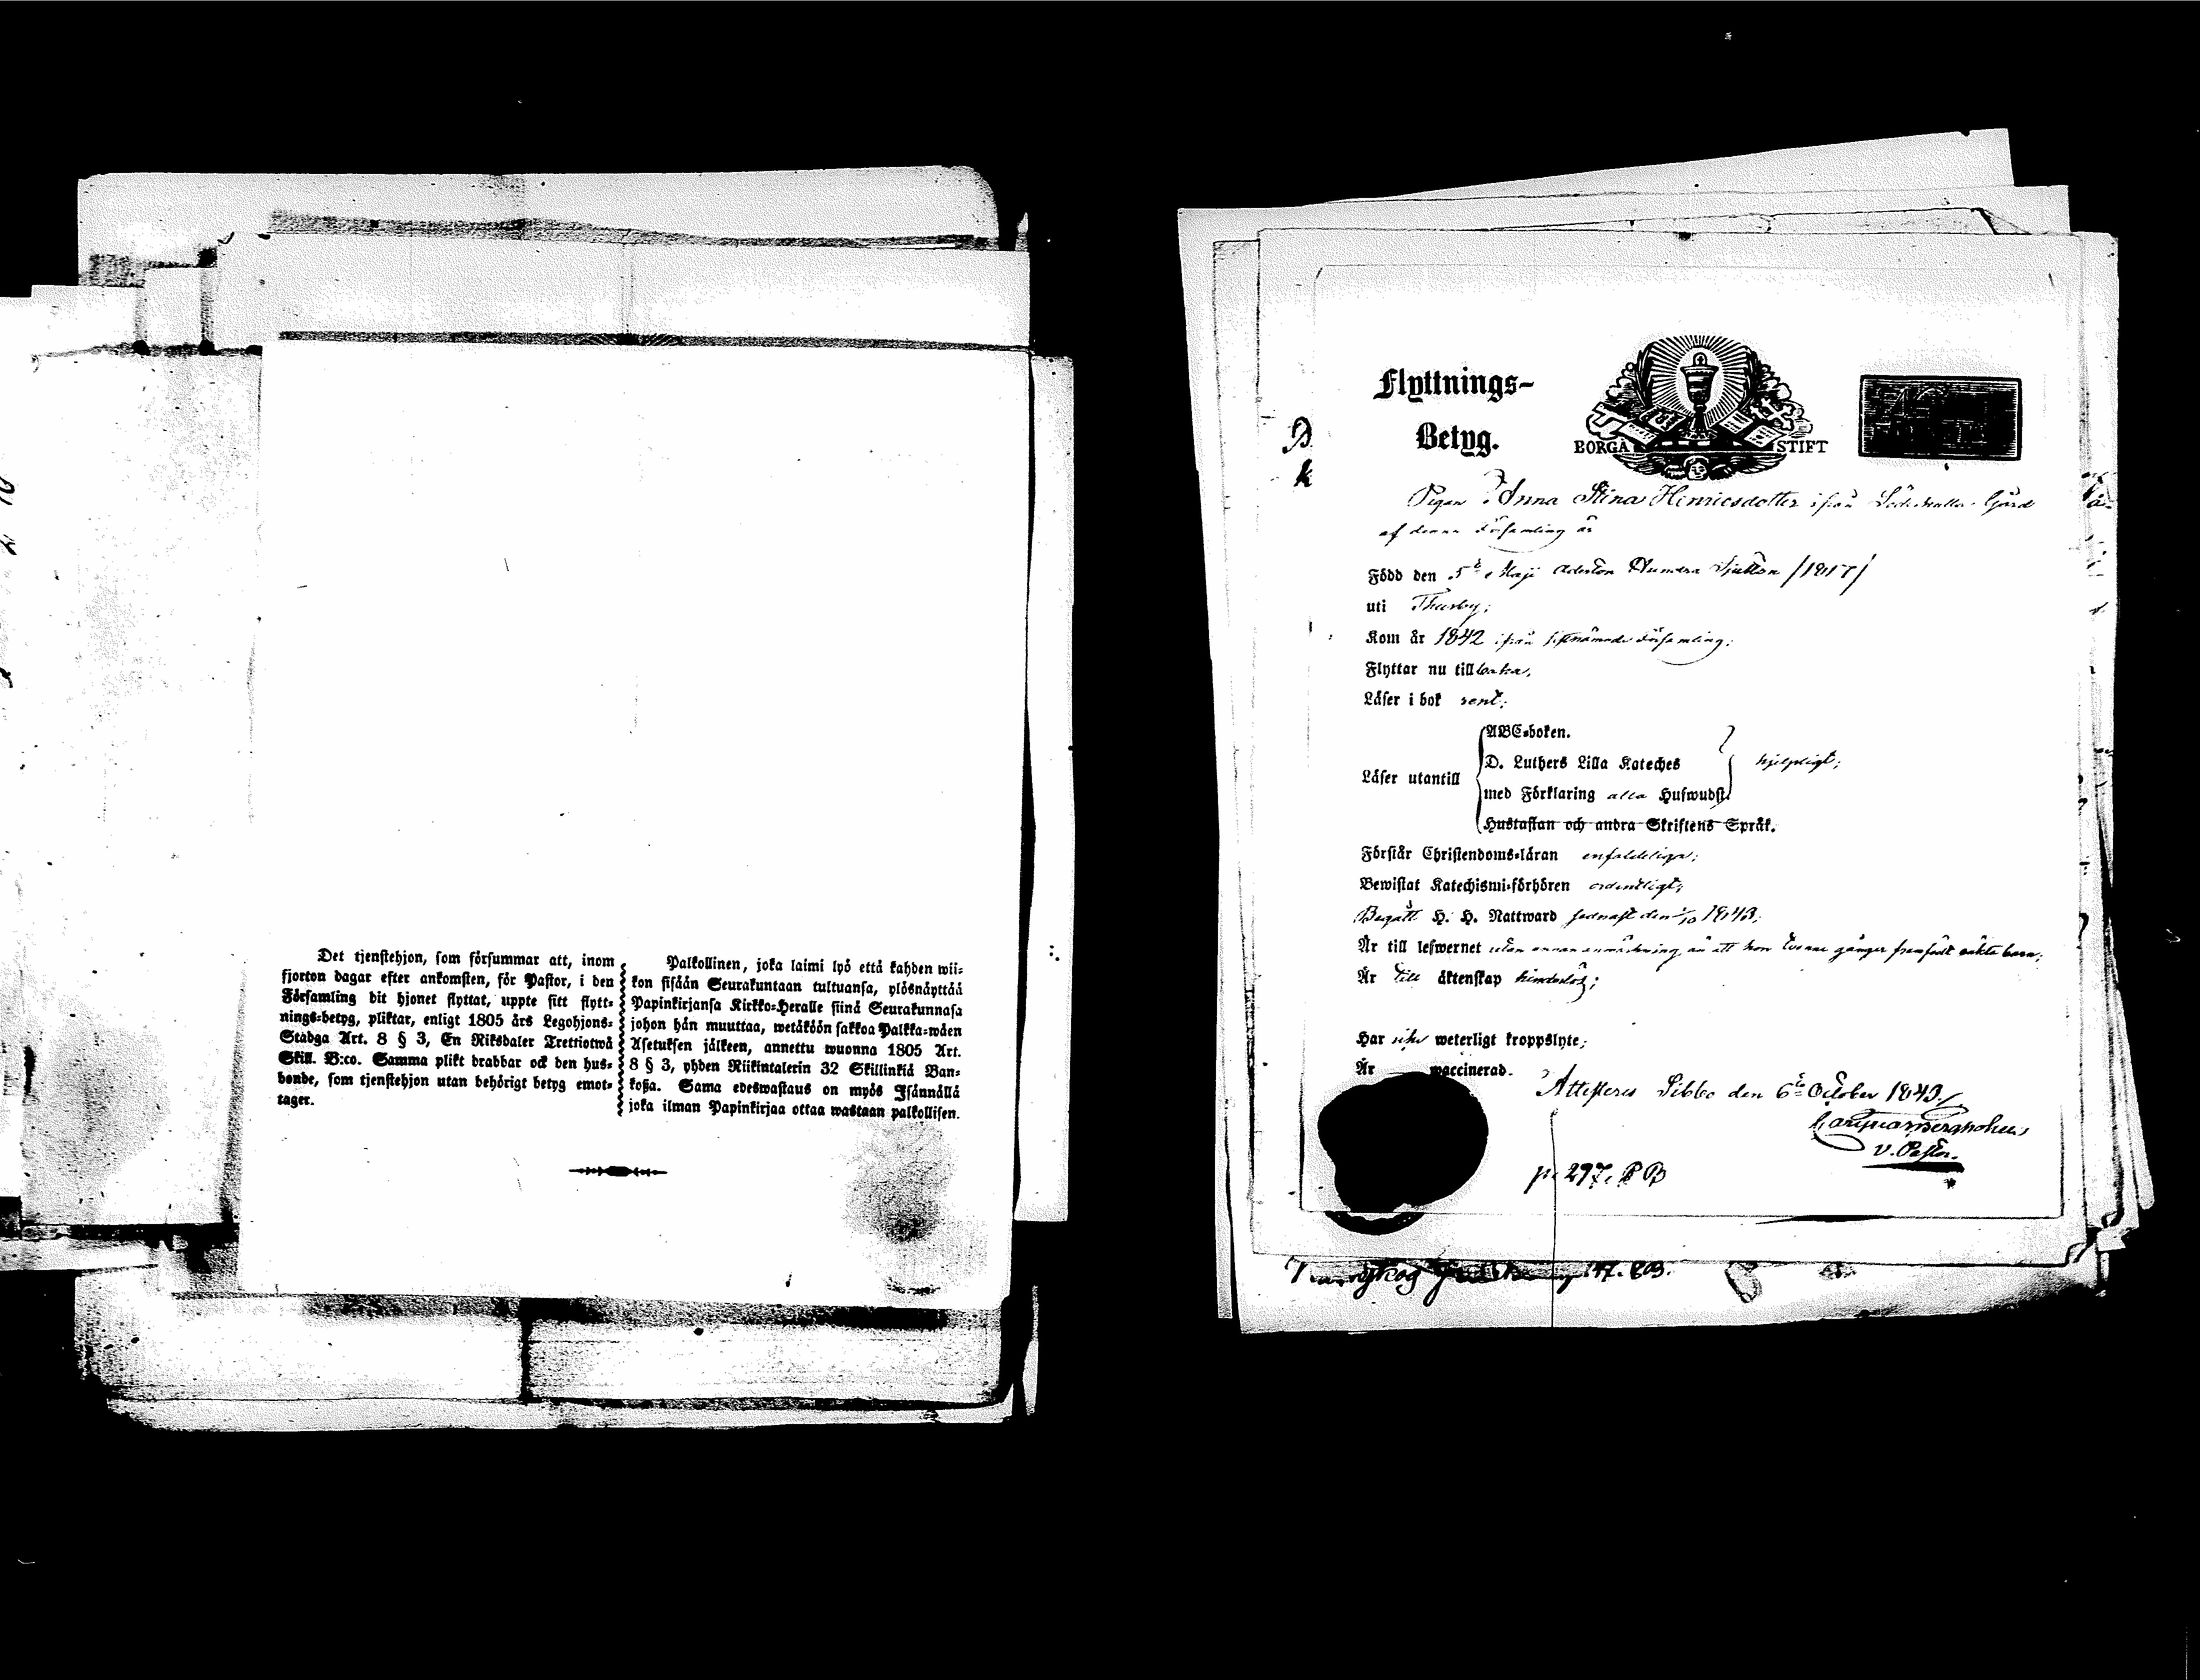 Det tjenstehjon, som försummar att, inom
fjorton dagar efter ankomsten, för Pastor, i den
Församling dit hjonet flyttat, uppte sitt flytt-
nings-betyg, pliktar, enligt 1805 års Legohjons-
Stadga Art. 8 § 3, En Riksdaler Trettiotwå
Skill. B:co. Samma plikt drabbar ock den hus-
bonde, som tjenstehjon utan behörigt betyg emot-
tager.
Palkollinen, joka laimi lyö että kahden wii-
kon sisään Seurakuntaan tultuansa, ylösnäyttää
Papinkirjansa Kirkko-Heralle siinä Seurakunnasa
johon hän muuttaa, wetäköön sakkoa Palkka-wäen
Asetuksen jälkeen, annettu wuonna 1805 Art.
8 § 3, yhden Riikintalerin 32 Skillinkiä Ban-
koßa. Sama edeswastaus on myös Isännällä
joka ilman Papinkirjaa ottaa wastaan palkollisen.
Flyttnings-
Betyg.
BORGÅ STIFT
Pigan Anna Stina Hinricsdotter ifrån Gård
af denna Församling är
Född den 5te Maji Aderton Hundra Sjutton /1817/
uti Thusby;
Kom år 1842 ifrån sistnämnde Församling;
Flyttar nu tillbaka,
Läser i bok rent;
ABC-boken.
D. Luthers Lilla Kateches
Läser utantill
hjelpligt;
med Förklaring alla Hufwudst.
Hustaflan och andra Skriftens Språk.
Förstår Christendoms-läran enfaldeligen;
Bewistat Katechismi-förhören ordentligt;
Begått H. H. Nattward sednast den 1/10 1843;
Är till lefwernet utan annan anmärkning än att hon twenne gånger framfödt oäkta barn;
Är till äktenskap hinderlös;
Har icke weterligt kroppslyte;
Är waccinerad.
Attesteras Sibbo den 6te October 1843./
v. Pastor.
p. 297. P B